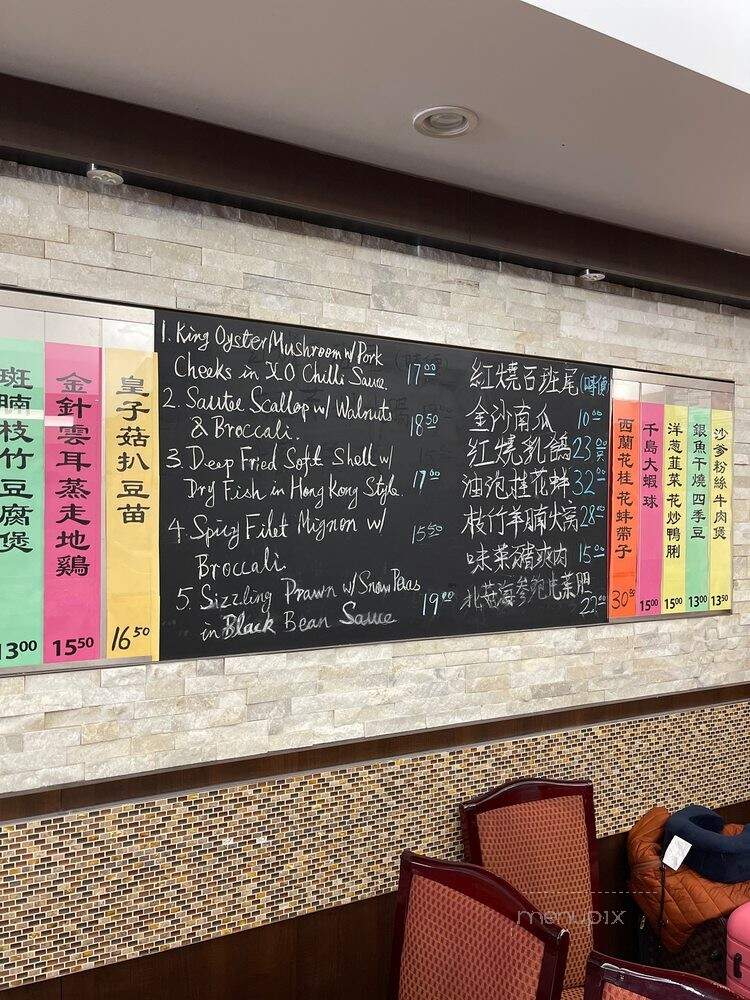 斑腩枝竹豆腐煲
13.00
金針雲耳蒸走地鷄
15.50
皇子菇扒豆苗
16.50
1. King Oyster Mushroom w/ Pork
Cheeks in XO Chilli Sauce 17.00
2. Sautee Scallop w/ Walnuts
& Broccali. 18.50
3. Deep Fried Soft Shell w/
Dry Fish in Hong Kong Style. 17.00
4. Spicy Filet Mignon w/ 15.50
Broccali
5. Sizzling Prawn w/ Snow Peas
in Black Bean Sauce 19.00
紅燒石班尾(時價)
金沙南瓜 10.00
紅燒乳鴿 23.00
油泡桂花蚌 32.00
枝竹羊腩火窩 28.00
味菜豬爽肉 15.00
北菇海參 22.00
西蘭花桂花蚌帶子
30.50
千島大蝦球
15.00
洋葱韮菜花炒鴨脷
15.00
銀魚干燒四季豆
13.00
沙爹粉絲牛肉煲
13.50
menupix